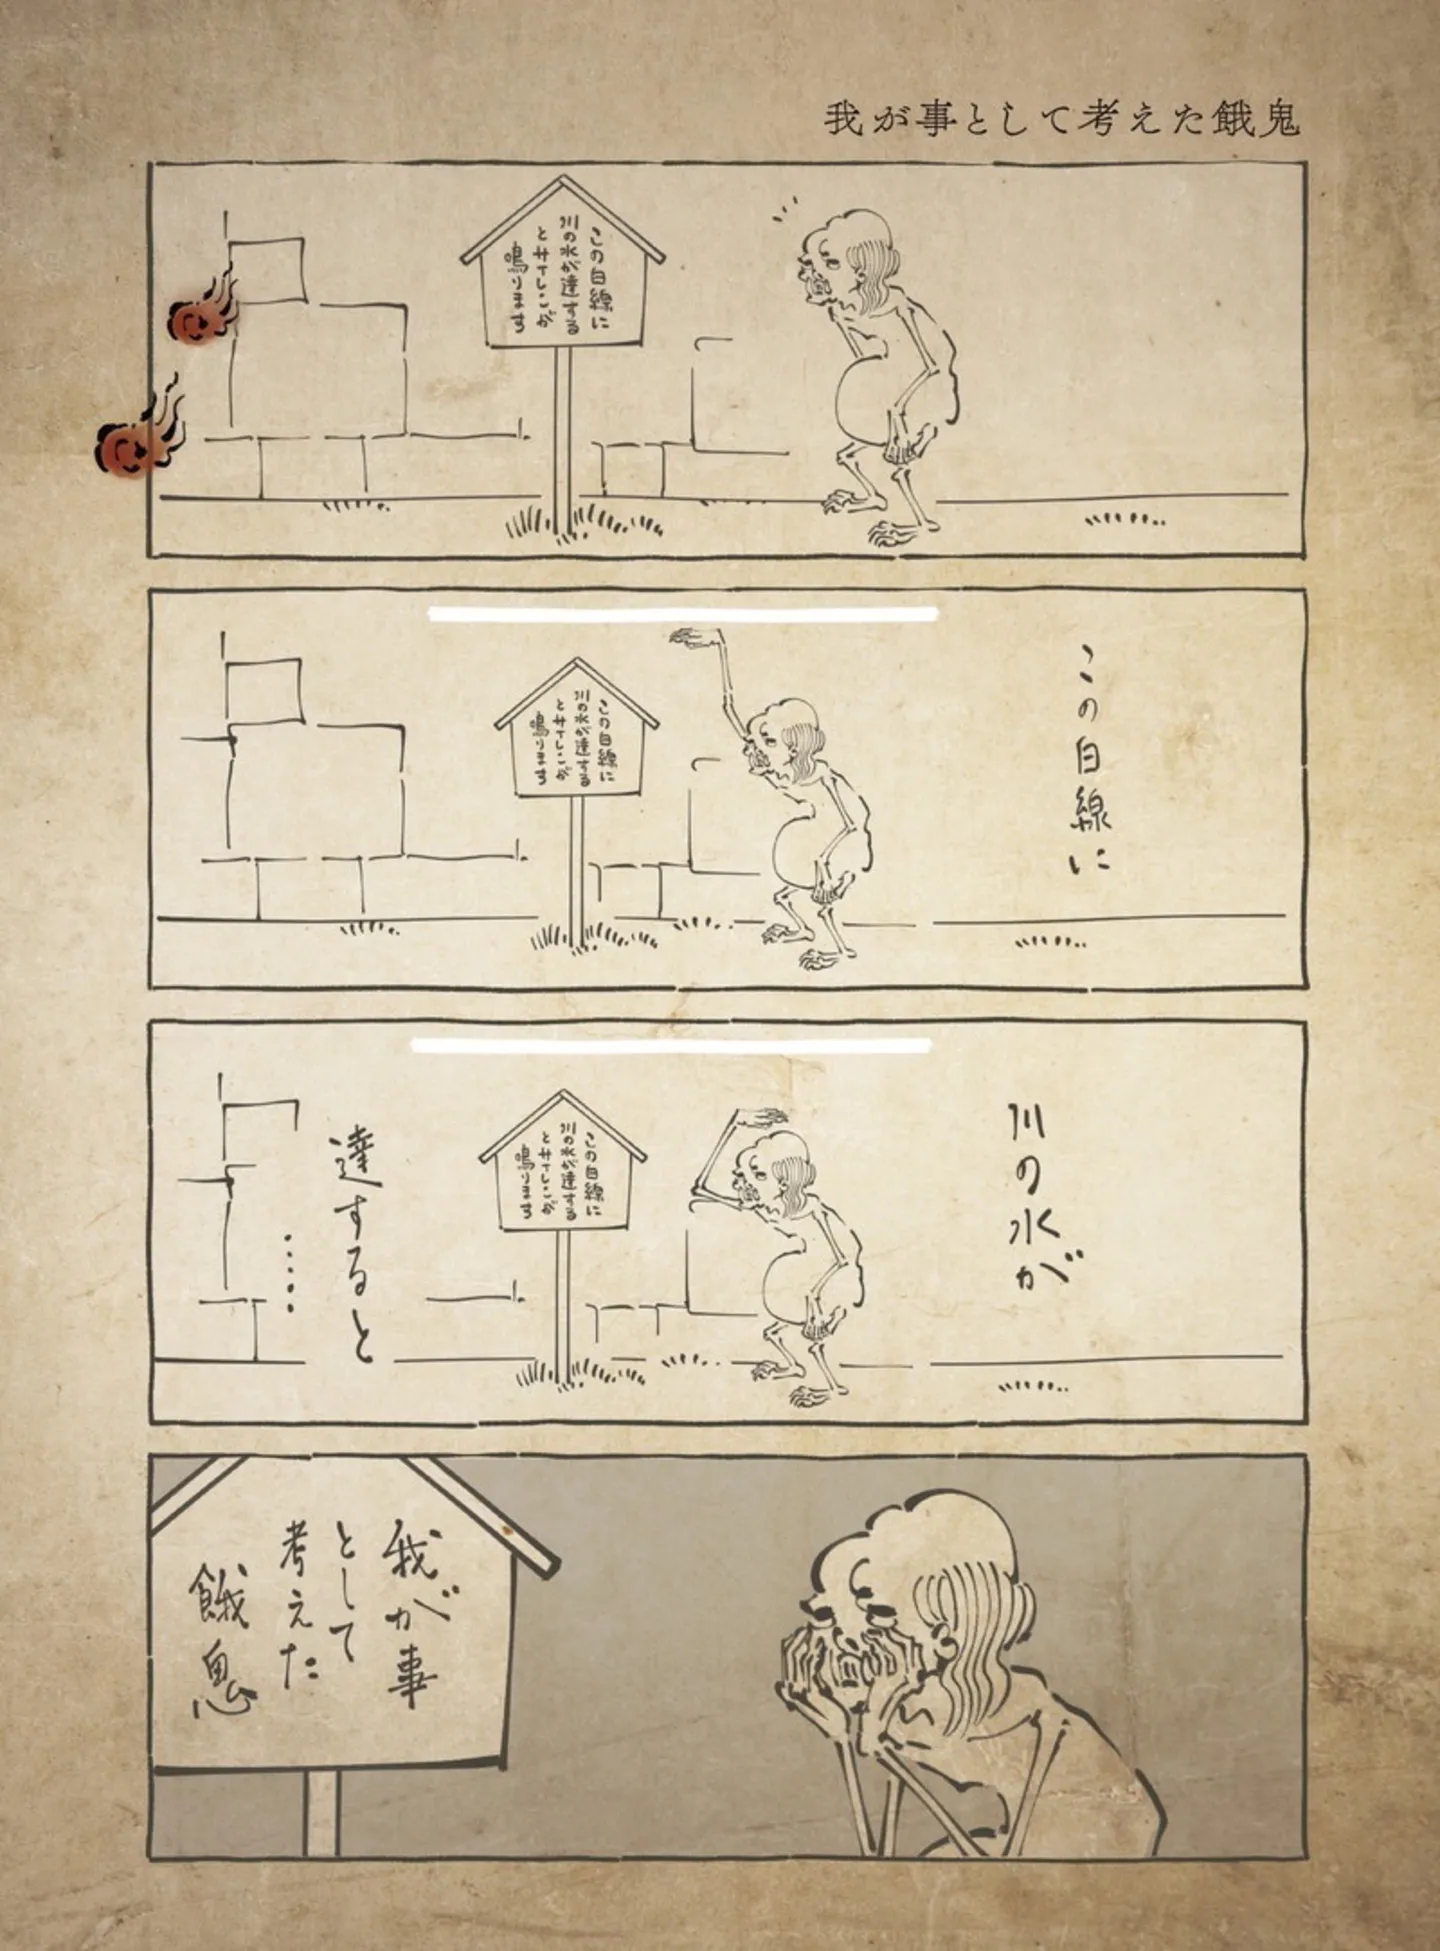 我が事として考えた餓鬼
この白線に
川の水が達する
とサイレンが
鳴ります
この白線に
この白線に
川の水が達する
とサイレンが
鳴ります
川の水が
この白線に
川の水が達する
とサイレンが
鳴ります
達すると
……
我が事
として
考えた
餓鬼